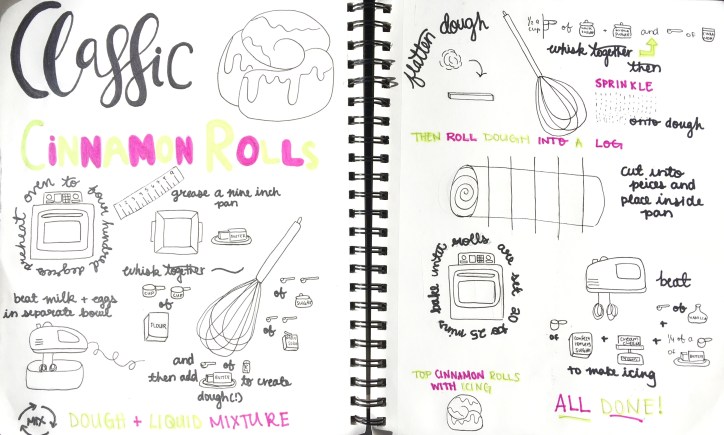 Classic
CINNAMON ROLLS
preheat oven to four hundred degrees
grease a nine inch
pan
BUTTER
whisk together
CUP
CUP
of
FLOUR
of
SUGAR
of
beat milk + eggs
in separate bowl
and
then add
BUTTER
to create
dough(!)
MIX
DOUGH + LIQUID MIXTURE
flatten dough
1/2 a
cup
of
+
and
of
whisk together
then
SPRINKLE
onto dough
THEN ROLL DOUGH INTO A LOG
cut into
peices and
place inside
pan
bake until rolls are set 20
25 mins
beat
of
VANILLA
+
of
SUGAR
+
CREAM
CHEESE
+
1/4 of a
of
BUTTER
to make icing
TOP CINNAMON ROLLS
WITH ICING
ALL DONE!